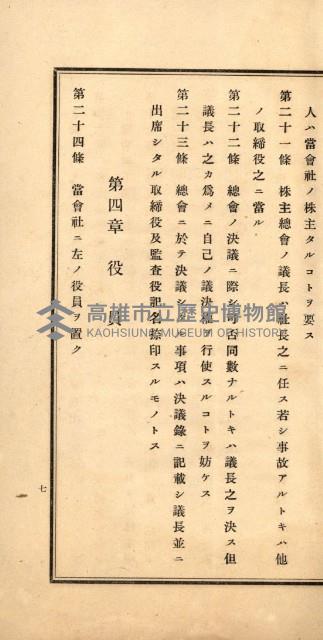 人ハ當會社ノ株主タルコトヲ要ス
第二十一條 株主總會ノ議長ハ社長之ニ任ス若シ事故アルトキハ他
ノ取締役之ニ當ル
第二十二條 總會ノ決議ニ際シ可否同數ナルトキハ議長之ヲ決ス但
議長ハ之カ爲メニ自己ノ議決權ヲ行使スルコトヲ妨ケス
第二十三條 總會ニ於テ決議シタル事項ハ決議錄ニ記載シ議長並ニ
出席シタル取締役及監査役記名捺印スルモノトス
第四章 役員
第二十四條 當會社ニ左ノ役員ヲ置ク
七
高雄市立歷史博物館
KAOHSIUNG MUSEUM OF HISTORY